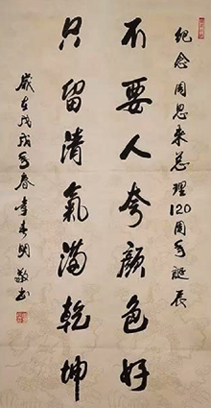 纪念周恩来总理120周年诞辰
不要人夸颜色好
只留清氣满乾坤
歲在戊戌年春李春明敬书